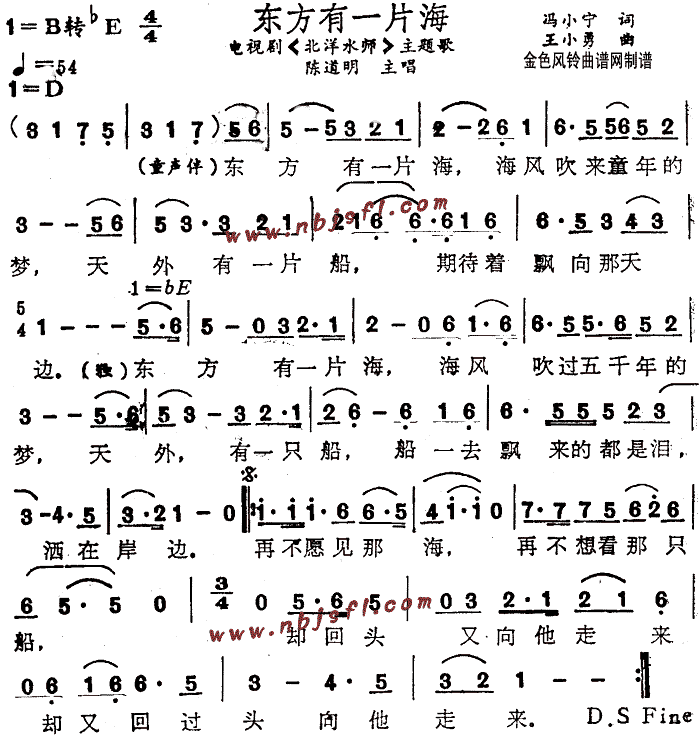 东方有一片海
1=B转♭E 4/4
电视剧《北洋水师》主题歌
冯小宁 词
王小勇 曲
♩=54
陈道明 主唱
金色风铃曲谱网制谱
1=D
(3 1 7 5 | 3 1 7) 5 6 | 5 - 5 3 2 1 | 2 - 2 6 1 | 6· 5 56 5 2 |
(童声伴)东 方 有一片 海, 海风 吹来童年的
www.nbjsfl.com
3 - - 5 6 | 5 3 · 3 2 1 | 2 1 6 6 · 6 1 6 | 6 · 5 3 4 3 |
梦, 天 外 有一片 船, 期待着 飘向那天
1=bE
5/4 1 - - - 5·6 | 5 - 0 3 2·1 | 2 - 0 6 1·6 | 6· 55·6 5 2 |
边.(独)东 方 有一片 海, 海风 吹过五千年的
3 - - 5·6 | 5 3 - 3 2·1 | 2 6 - 6 1 6 | 6· 5 5 5 2 3 |
梦, 天 外, 有一只 船, 船一去 飘来的都是泪,
3 - 4· 5 | 3·2 1 - 0 | i· i i·6 6·5 | 4 i· i 0 | 7· 7 7 5 6 2 6 |
洒在 岸边. 再不愿见那 海, 再不想看那只
6 5· 5 0 | 3/4 0 5·6 5 | 0 3 2·1 | 2 1 6 |
www.nbjsfl.com
船, 却回头 又向他走来
0 6 1 6 6· 5 | 3 - 4· 5 | 3 2 1 - - :‖
却又回过头 向他走来. D.S Fine